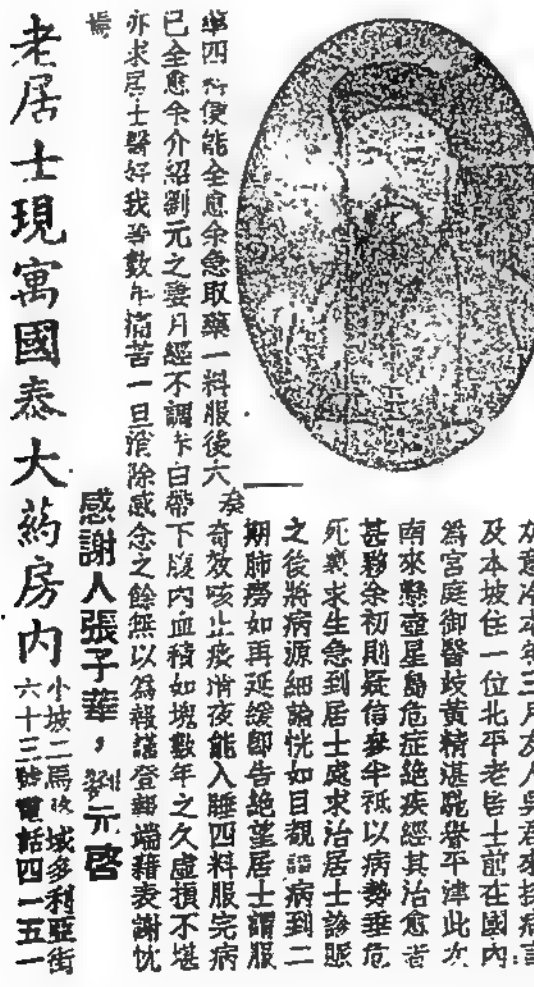 灰意冷本年三月友人吳君來探病言
及本坡住一位北平老居士前在國內
爲宮庭御醫歧黃精湛馳譽平津此次
南來懸壺星島危症絕疾經其治愈者
甚夥余初則疑信參半祗以病勢垂危
死裏求生急到居士處求治居士診賬
之後將病源細論恍如目覩謂病到二
期肺癆如再延緩卽吿絕望居士謂服
藥四料便能全愈余急取藥一料服後大
奏奇效咳止痰消夜能入睡四料服完病
已全愈余介紹劉元之妻月經不調赤白帶下腹內血積如塊數年之久虛損不堪
亦求居士醫好我等數年痛苦一旦消除感念之餘無以爲報謹登報端藉表謝忱
感謝人張子華，劉元啓
老居士現寓國泰大葯房內
小坡二馬路域多利亞街
六十三號電話四一五一